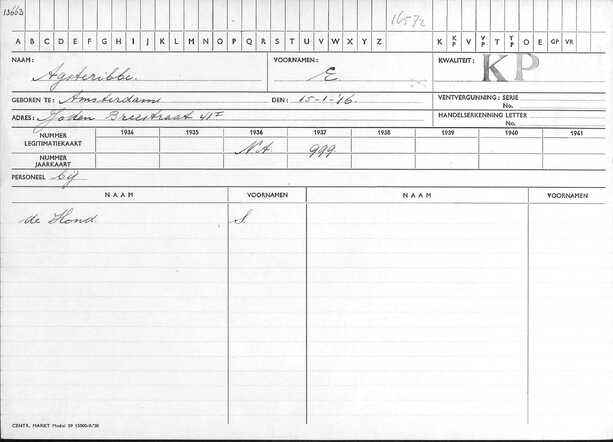 13663
16572
A B C D E F G H I J K L M N O P Q R S T U V W X Y Z K K P V V P T T P O E GP VR
NAAM: Agsteribbe. VOORNAMEN: E. KWALITEIT: KP
GEBOREN TE: Amsterdam DEN: 15-1-'16. VENTVERGUNNING: SERIE No.
ADRES: Joden Breestraat 41 I HANDELSERKENNING LETTER No.
NUMMER LEGITIMATIEKAART 1934 1935 1936 1937 1938 1939 1940 1941
NA 999
NUMMER JAARKAART
PERSONEEL bij
NAAM VOORNAMEN NAAM VOORNAMEN
de Hond S.
CENTR. MARKT Model 59 15000-9/'38